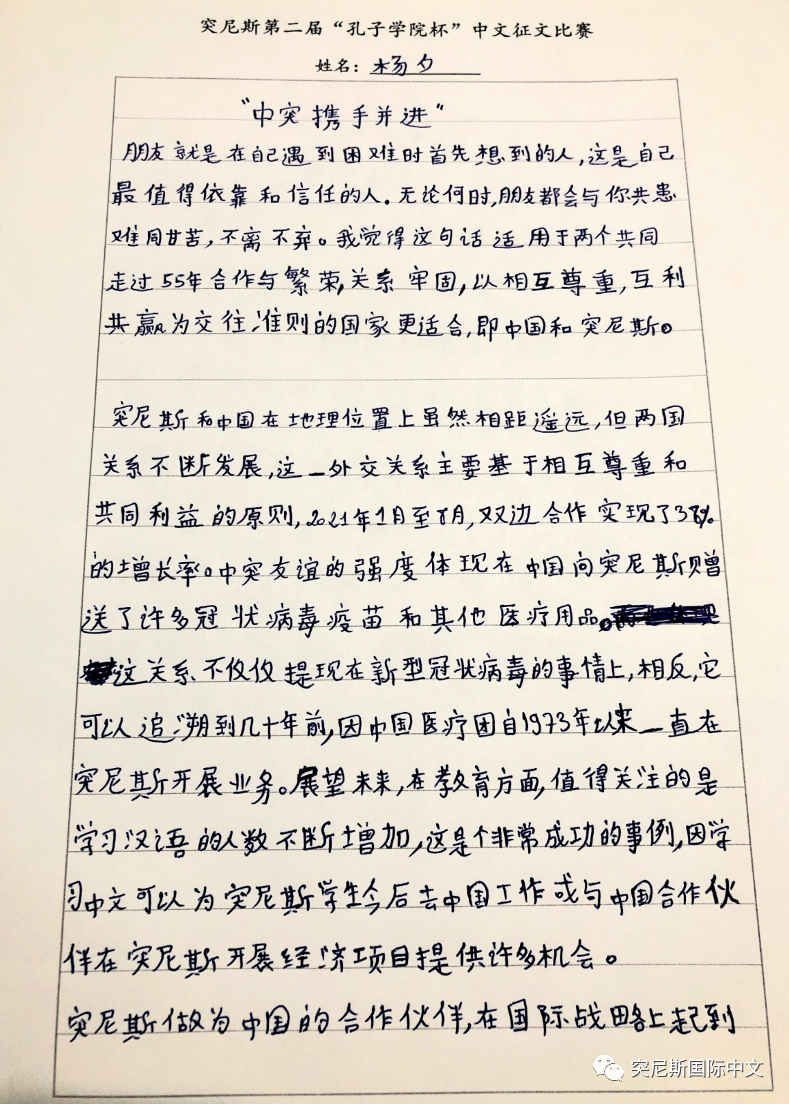 突尼斯第二届“孔子学院杯”中文征文比赛
姓名：杨夕
“中突携手并进”
朋友就是在自己遇到困难时首先想到的人，这是自己
最值得依靠和信任的人．无论何时，朋友都会与你共患
难同甘苦，不离不弃。我觉得这句话适用于两个共同
走过55年合作与繁荣，关系牢固，以相互尊重，互利
共赢为交往准则的国家更适合，即中国和突尼斯。
突尼斯和中国在地理位置上虽然相距遥远，但两国
关系不断发展，这一外交关系主要基于相互尊重和
共同利益的原则，2021年1月至8月，双边合作实现了38%
的增长率。中突友谊的强度体现在中国向突尼斯赠
送了许多冠状病毒疫苗和其他医疗用品。
这关系不仅仅提现在新型冠状病毒的事情上，相反，它
可以追溯到几十年前，因中国医疗团自1973年以来一直在
突尼斯开展业务。展望未来，在教育方面，值得关注的是
学习汉语的人数不断增加，这是个非常成功的事例，因学
习中文可以为突尼斯学生今后去中国工作或与中国合作伙
伴在突尼斯开展经济项目提供许多机会。
突尼斯做为中国的合作伙伴，在国际战略上起到
突尼斯国际中文